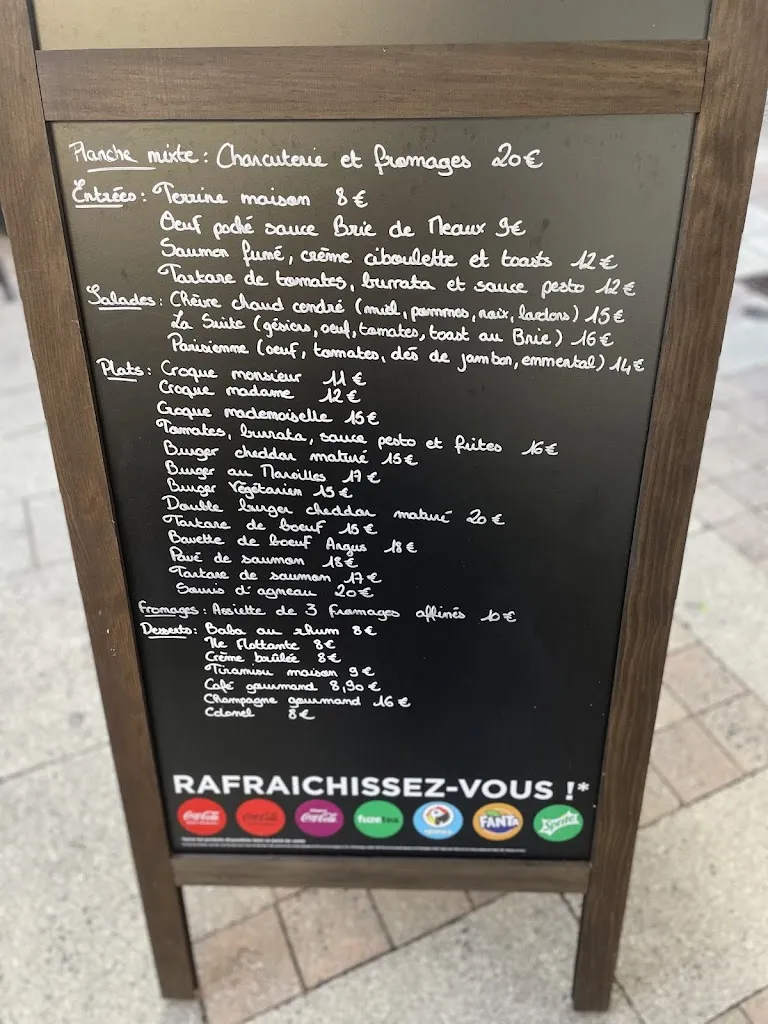 Planche mixte : Charcuterie et fromages 20€
Entrées : Terrine maison 8€
Oeuf poché sauce Brie de Meaux 9€
Saumon fumé, crème ciboulette et toasts 12€
Tartare de tomates, burrata et sauce pesto 12€
Salades : Chèvre chaud cendré (miel, pommes, noix, lardons) 15€
La Suite (gésiers, oeuf, tomates, toast au Brie) 16€
Parisienne (oeuf, tomates, dés de jambon, emmental) 14€
Plats : Croque monsieur 11€
Croque madame 12€
Croque mademoiselle 15€
Tomates, burrata, sauce pesto et frites 16€
Burger cheddar maturé 15€
Burger au Maroilles 17€
Burger Végétarien 15€
Double burger cheddar maturé 20€
Tartare de boeuf 15€
Bavette de boeuf Angus 18€
Pavé de saumon 18€
Tartare de saumon 17€
Souris d'agneau 20€
Fromages : Assiette de 3 fromages affinés 10€
Desserts : Baba au rhum 8€
Ile Flottante 8€
Crème brûlée 8€
Tiramisu maison 9€
Café gourmand 8,90€
Champagne gourmand 16€
Colonel 8€
RAFRAICHISSEZ-VOUS !*
Coca-Cola Coca-Cola Coca-Cola fuzetea FANTA Sprite